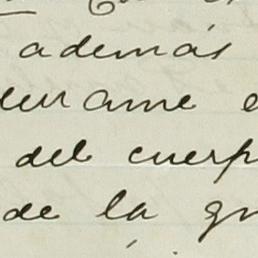 además
derrame e
del cuerp
de la gr